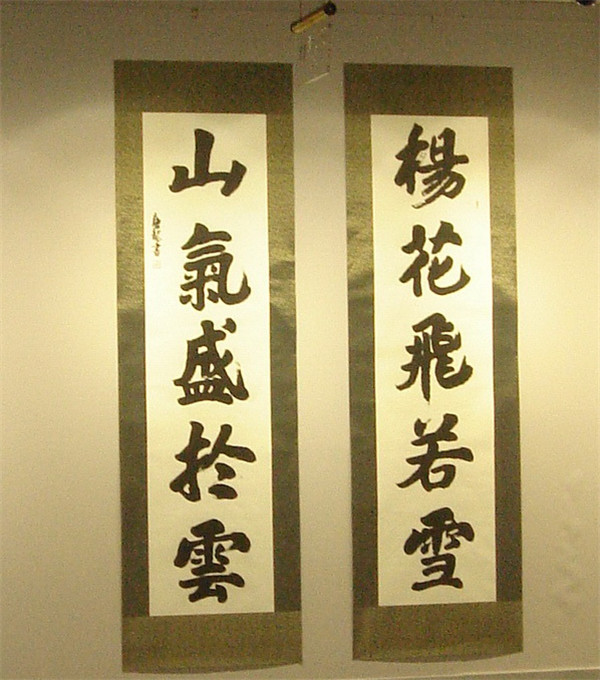 楊花飛若雪
山氣盛於雲